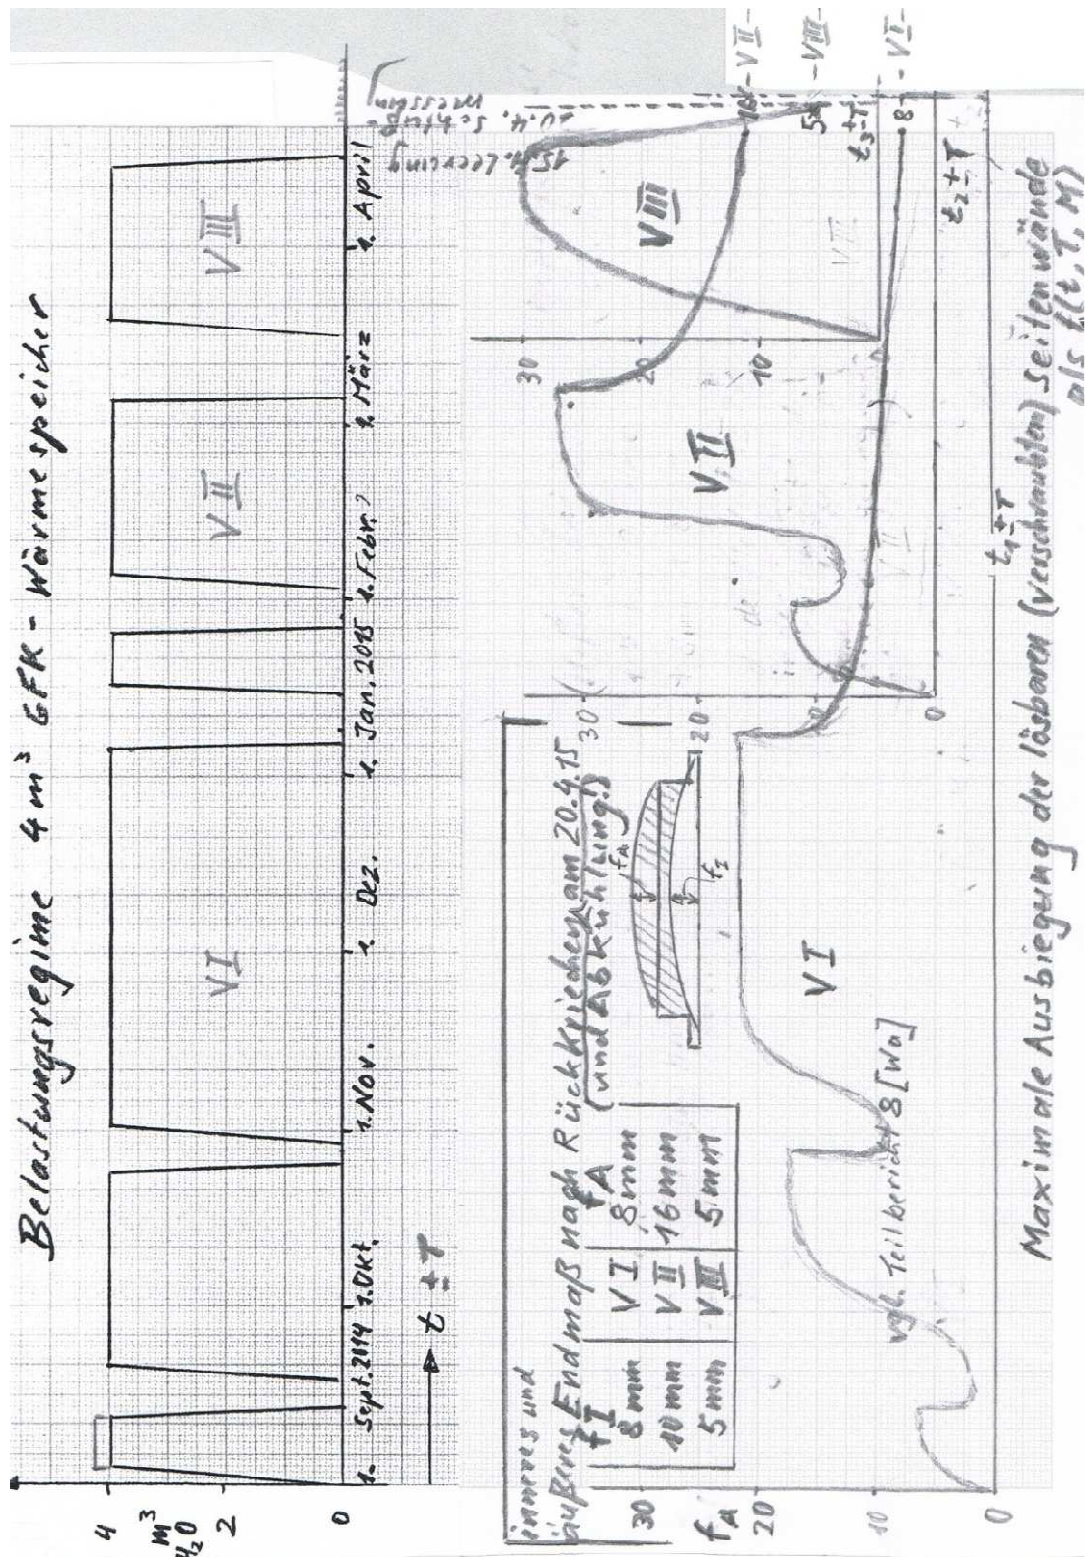 Belastungsregime 4m³ GFK-Wärmespeicher
4
m³
H₂O
2
0
V I
V II
V III
1. Sept. 2014
1. Okt.
1. Nov.
1. Dez.
1. Jan. 2015
1. Febr.
1. März
1. April
t ± T
15.4. Leerung
20.4. Schluß-
messung
inneres und
äußeres Endmaß nach Rückkriechen am 20.4.15
(und Abkühlung!)
f I f A
8 mm V I 8 mm
10 mm V II 16 mm
5 mm V III 5 mm
f A
f I
30
f A
20
10
0
30
20
10
0
30
20
10
V I
V II
V III
V II
V III
vgl. Teilbericht 8 [Wa]
t₁ ± T
t₂ ± T
t₃ ± T
16 - V II -
5 - V III -
8 - V I -
Maximale Ausbiegung der lösbaren (verschraubten) Seitenwände
als f(t, T, M)